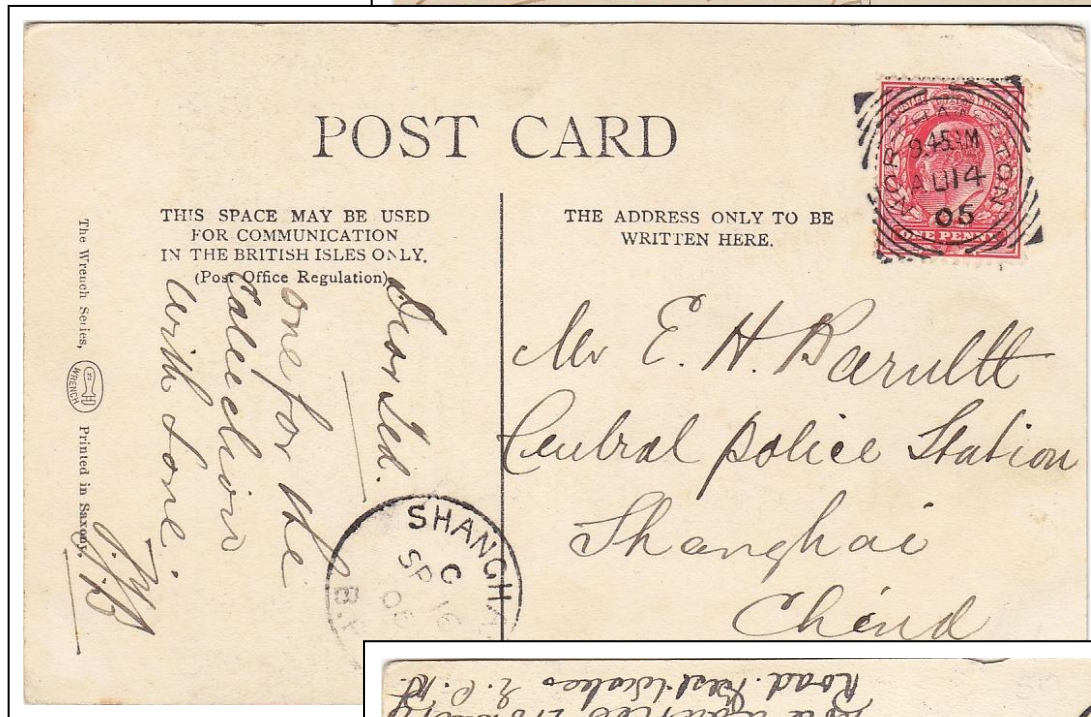 POST CARD
THIS SPACE MAY BE USED
FOR COMMUNICATION
IN THE BRITISH ISLES ONLY.
(Post Office Regulation)
THE ADDRESS ONLY TO BE
WRITTEN HERE.
NORTHAMPTON
9.45AM
AU 14
05
ONE PENNY
The Wrench Series,
WRENCH
Printed in Saxony.
Dear Ted.
one for the
Collection
with love.
Mr E. H. Barultt
Central Police Station
Shanghai
China
SHANGHA
C
SP 16
05
B.P
Road